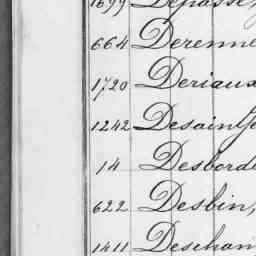 1699 Depasse
664 Derenne
1720 Deriaux
1242 Desaint
14 Desborde
622 Desbin,
1411 Deschan